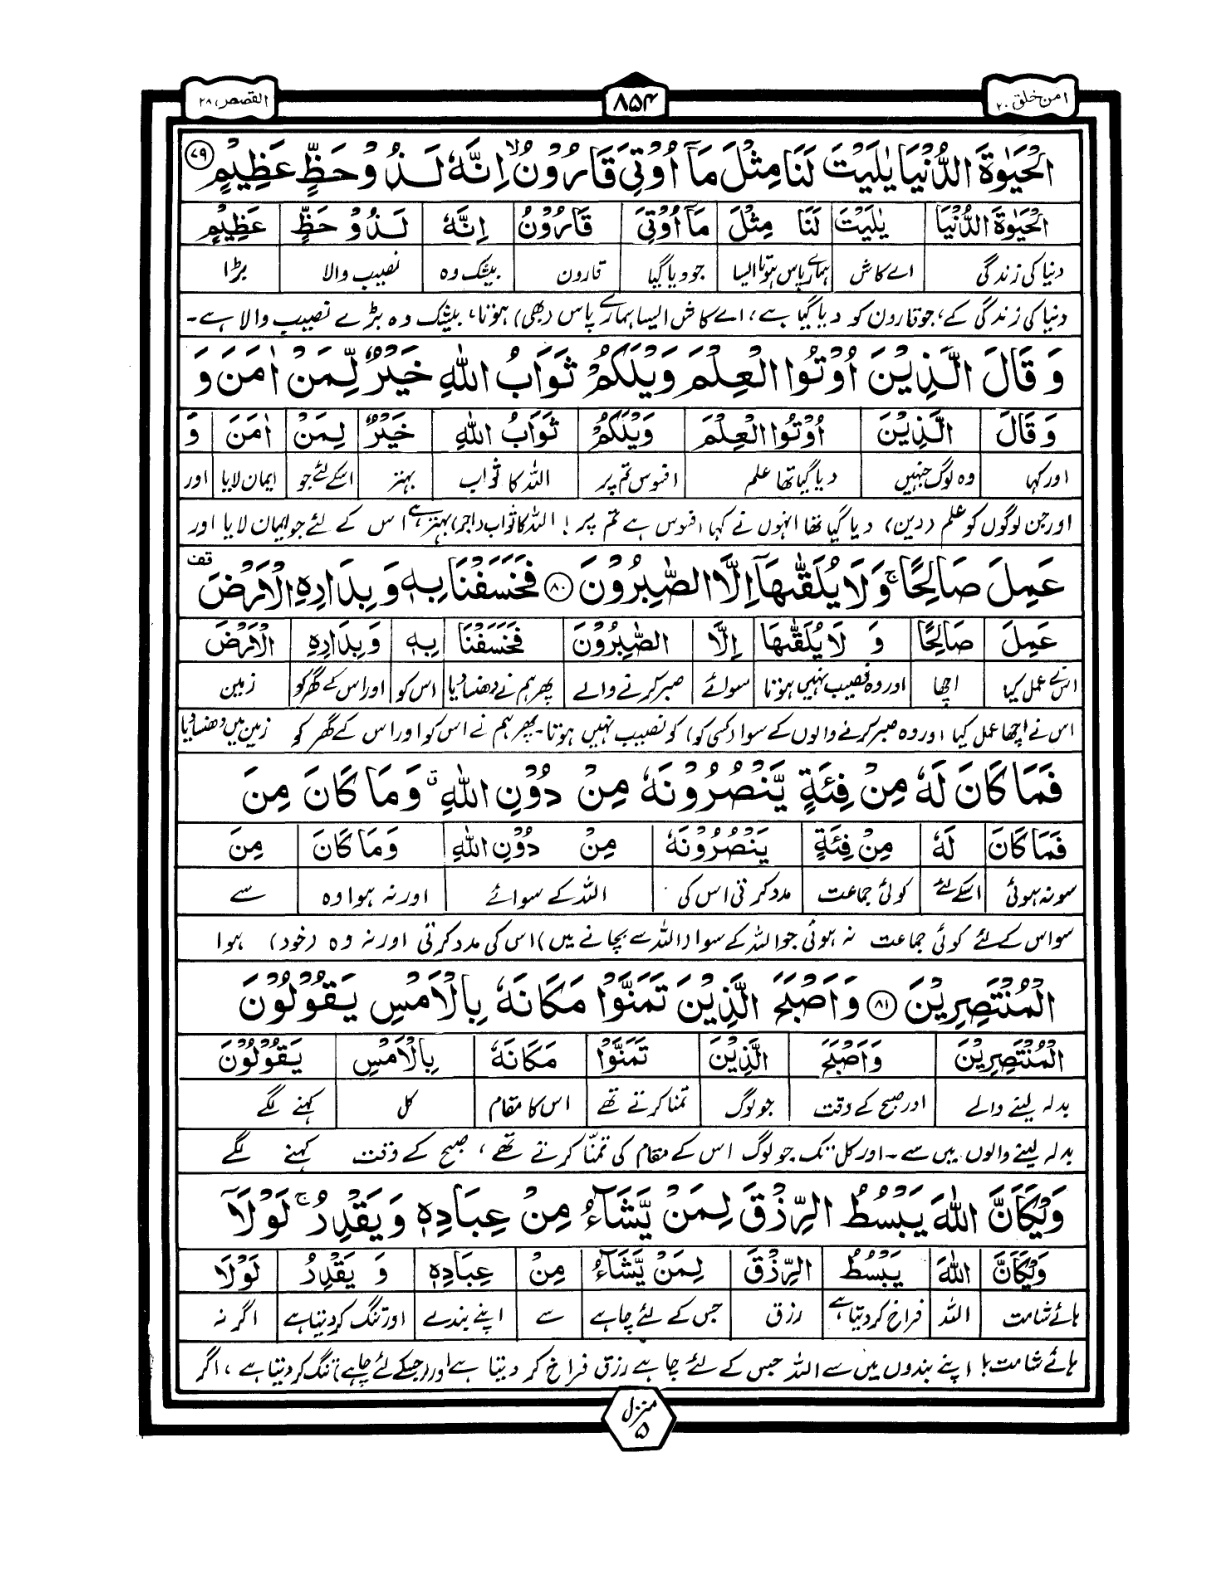 امن خلق ۲۰
۸۵۴
القصص ۲۸
الْحَيٰوةَ الدُّنْيَا يٰلَيْتَ لَنَا مِثْلَ مَآ اُوْتِيَ قَارُوْنُ ۙ اِنَّهٗ لَذُوْ حَظٍّ عَظِيْمٍ ۷۹
الْحَيٰوةَ الدُّنْيَا يٰلَيْتَ لَنَا مِثْلَ مَآ اُوْتِيَ قَارُوْنُ اِنَّهٗ لَذُوْ حَظٍّ عَظِيْمٍ
دنیا کی زندگی اے کاش ہمارے پاس ہوتا ایسا جو دیا گیا قارون بیشک وہ نصیب والا بڑا
دنیا کی زندگی کے، جو قارون کو دیا گیا ہے، اے کاش ایسا ہمارے پاس (بھی) ہوتا، بیشک وہ بڑے نصیب والا ہے۔
وَ قَالَ الَّذِيْنَ اُوْتُوا الْعِلْمَ وَيْلَكُمْ ثَوَابُ اللّٰهِ خَيْرٌ لِّمَنْ اٰمَنَ وَ
وَ قَالَ الَّذِيْنَ اُوْتُوا الْعِلْمَ وَيْلَكُمْ ثَوَابُ اللّٰهِ خَيْرٌ لِمَنْ اٰمَنَ وَ
اور کہا وہ لوگ جنہیں دیا گیا تھا علم افسوس تم پر اللہ کا ثواب بہتر اسکے لئے جو ایمان لایا اور
اور جن لوگوں کو علم (دین) دیا گیا تھا انہوں نے کہا افسوس ہے تم پر! اللہ کا ثواب (اجر) بہتر ہے اس کے لئے جو ایمان لایا اور
عَمِلَ صَالِحًا ۚ وَلَا يُلَقّٰىهَآ اِلَّا الصّٰبِرُوْنَ ۸۰ فَخَسَفْنَا بِهٖ وَبِدَارِهِ الْاَرْضَ قف
عَمِلَ صَالِحًا وَ لَا يُلَقّٰىهَا اِلَّا الصّٰبِرُوْنَ فَخَسَفْنَا بِهٖ وَبِدَارِهِ الْاَرْضَ
اس نے عمل کیا اچھا اور وہ نصیب نہیں ہوتا سوائے صبر کرنے والے پھر ہم نے دھنسا دیا اس کو اور اس کے گھر کو زمین
اس نے اچھا عمل کیا اور وہ صبر کرنے والوں کے سوا (کسی کو) کو نصیب نہیں ہوتا۔ پھر ہم نے اس کو اور اس کے گھر کو زمین میں دھنسا دیا
فَمَا كَانَ لَهٗ مِنْ فِئَةٍ يَّنْصُرُوْنَهٗ مِنْ دُوْنِ اللّٰهِ ۤ وَمَا كَانَ مِنَ
فَمَا كَانَ لَهٗ مِنْ فِئَةٍ يَنْصُرُوْنَهٗ مِنْ دُوْنِ اللّٰهِ وَمَا كَانَ مِنَ
سو نہ ہوئی اسکے لئے کوئی جماعت مدد کرتی اس کی اللہ کے سوائے اور نہ ہوا وہ سے
سو اس کے لئے کوئی جماعت نہ ہوئی جو اللہ کے سوا (اللہ سے بچانے میں) اس کی مدد کرتی اور نہ وہ (خود) ہوا
الْمُنْتَصِرِيْنَ ۸۱ وَاَصْبَحَ الَّذِيْنَ تَمَنَّوْا مَكَانَهٗ بِالْاَمْسِ يَقُوْلُوْنَ
الْمُنْتَصِرِيْنَ وَاَصْبَحَ الَّذِيْنَ تَمَنَّوْا مَكَانَهٗ بِالْاَمْسِ يَقُوْلُوْنَ
بدلہ لینے والے اور صبح کے وقت جو لوگ تمنا کرتے تھے اس کا مقام کل کہنے لگے
بدلہ لینے والوں میں سے۔ اور کل تک جو لوگ اس کے مقام کی تمنّا کرتے تھے، صبح کے وقت کہنے لگے
وَيْكَاَنَّ اللّٰهَ يَبْسُطُ الرِّزْقَ لِمَنْ يَّشَآءُ مِنْ عِبَادِهٖ وَيَقْدِرُ ۚ لَوْلَآ
وَيْكَاَنَّ اللّٰهَ يَبْسُطُ الرِّزْقَ لِمَنْ يَّشَآءُ مِنْ عِبَادِهٖ وَ يَقْدِرُ لَوْلَآ
ہائے شامت اللہ فراخ کر دیتا ہے رزق جس کے لئے چاہے سے اپنے بندے اور تنگ کر دیتا ہے اگر نہ
ہائے شامت! اپنے بندوں میں سے اللہ جس کے لئے چاہے رزق فراخ کر دیتا ہے اور (جسکے لئے چاہے) تنگ کر دیتا ہے، اگر
منزل ۵